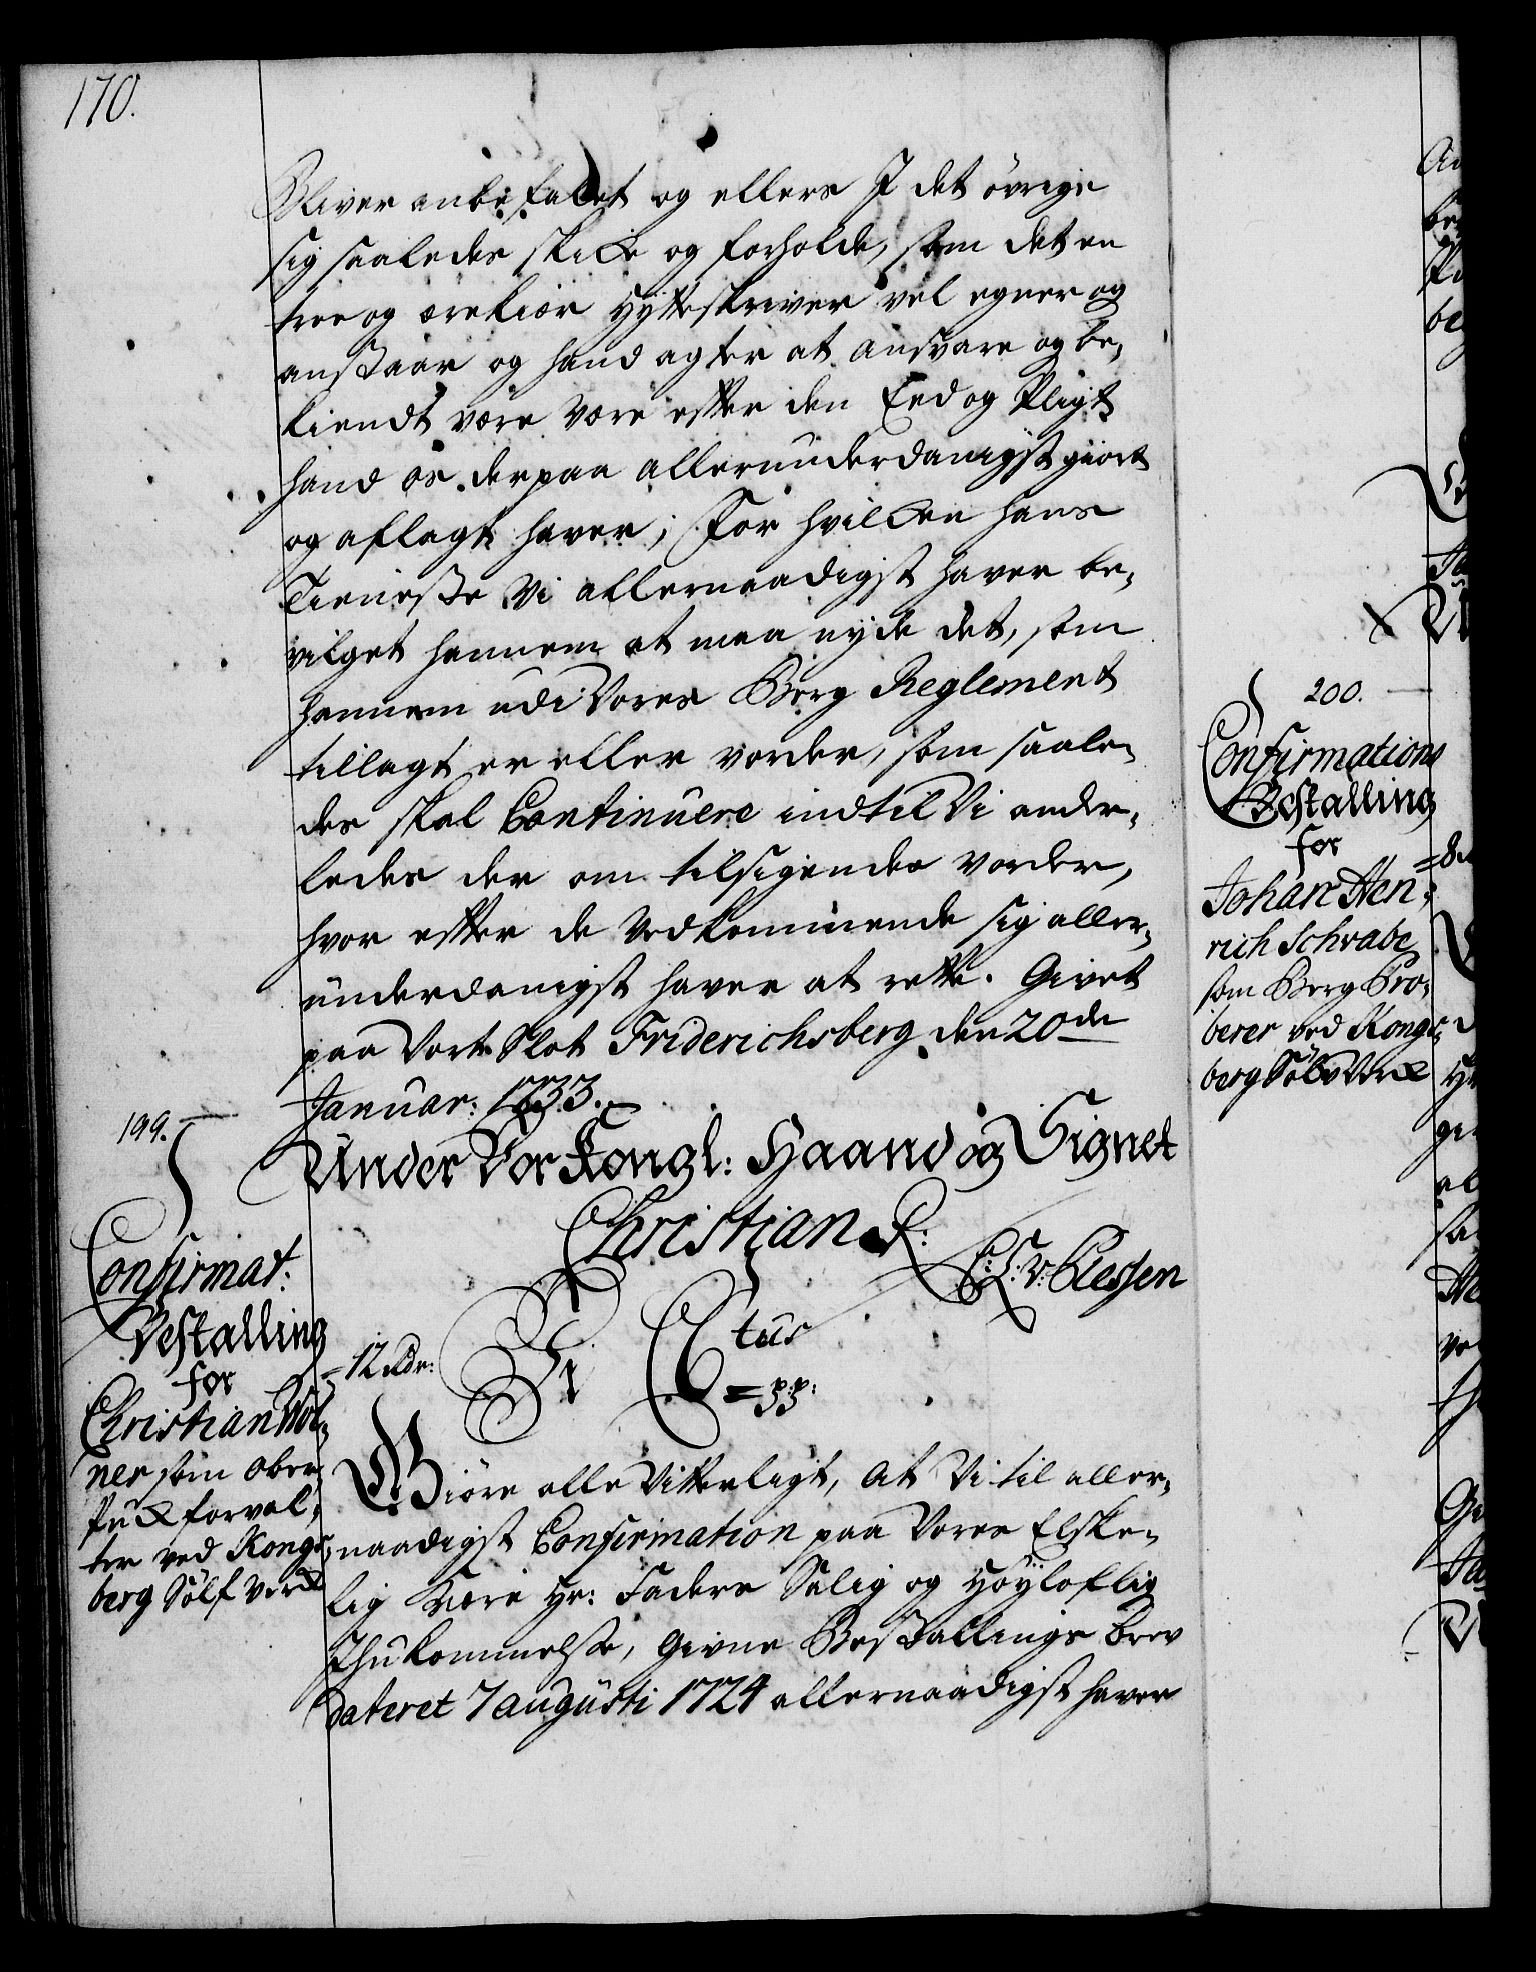 170.
Bliver anbefalet og ellers I det övrige
sig saaledes skicke og forholde, som det en
troe og ærekiær Hytteskriver vel egner og
anstaar og hand agter at ansvare og be,
kiendt være være efter den Eed og Pligt
hand os derpaa allerunderdanigst giort
og aflagt haver; For hvilcken hans
Tieneste Vi allernaadigst haver be,
vilget hannem at maa nyde det, som
hannem udi Vores Berg Reglement
tillagt er eller vorder, som saale,
des skal Continuere indtil Vi ander,
ledes der om tilsigendes vorder,
hvor efter de Vedkommende sig aller,
underdanigst haver at rette. Givet
paa Vort Slot Friderichsberg den 20de
Januar: 1733.
Under Vor Kongl: Haand og Signet
Christian R:
C: S: v: Plessen
199.
Confirmat:
Bestalling
for
Christian Wol,
ner som ober
Puckforval,
ter ved Kongs,
berg Sölf Verck
= 12 Rdr:
Vi C6tus
= pp:
Giöre alle Vitterligt, At Vi til aller,
naadigst Confirmation paa Vores Elske,
lig Kiære Hr: Faders Salig og Höyloflig
Ihukommelse, Givne Bestallings brev
dateret 7 augusti 1724 allernaadigst haver
200.
Confirmations
Bestalling
for
Johan Hen,
rich Schwabe
som Berg Pro,
berer ved Kongs,
berg Sölv Verck